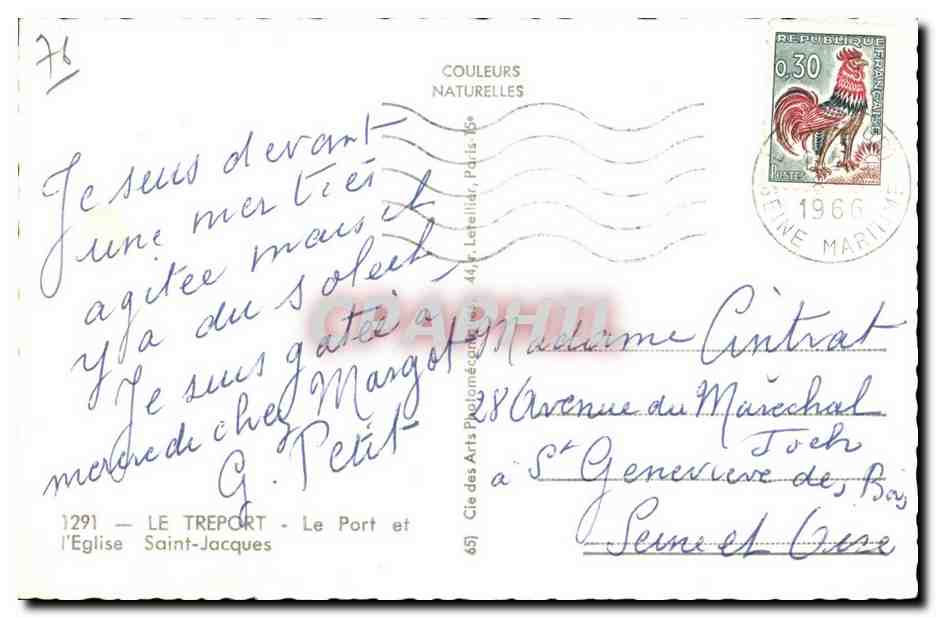 76
COULEURS
NATURELLES
REPUBLIQUE FRANÇAISE
0,30
POSTES
1966
SEINE MARITIME
Je suis devant
une mer très
agitée mais il
y a du soleil,
Je suis gatée à
mercredi chez Margot
G. Petit
1291 — LE TREPORT - Le Port et
l'Eglise Saint-Jacques
65) Cie des Arts Photomécaniques 44, r. Letellier, Paris-15e
Madame Cintrat
28 Avenue du Maréchal
Foch
à St Geneviève des Bois
Seine et Oise
CPAPHIL